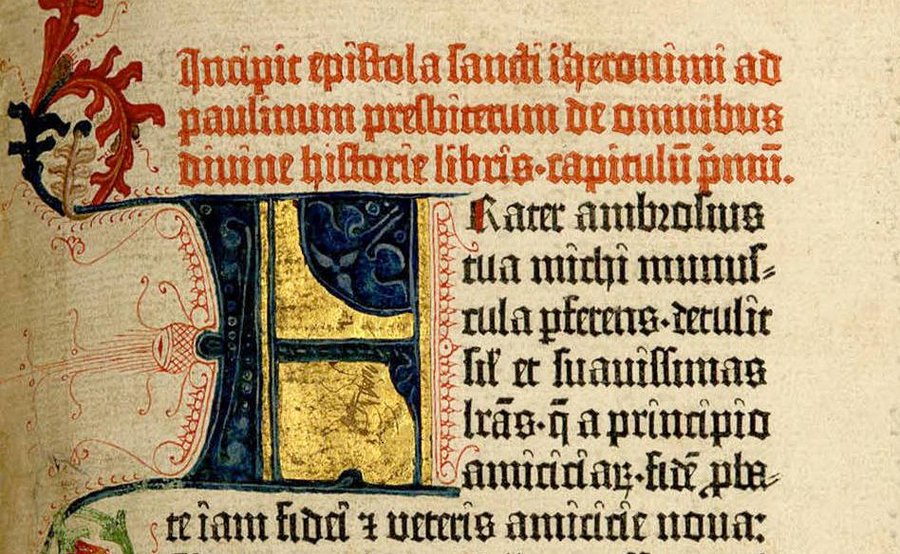 Incipit epistola sancti iheronimi ad
paulinum presbiterum de omnibus
divine historie libris·capitulū p̄mū.
FRater ambrosius
tua michi munus-
cula ꝑferens·detulit
sił et suauissimas
lrās·q̄ a principio
amiciciaꝝ·fidē ꝓba-
te iam fidei ⁊ veteris amicicie noua: